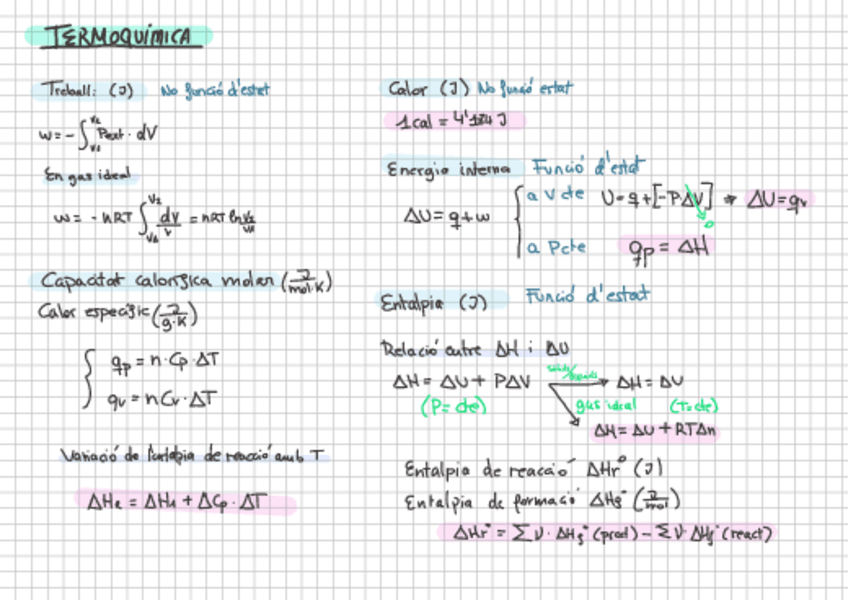 TERMOQUÍMICA
Treball: (J) No funció d'estat
w = - ∫ᵥ₁ⱽ² Pext · dV
En gas ideal
w = - nRT ∫ᵥ₁ⱽ² dv/v = nRT ln V2/V1
Capacitat calorífica molar (J/mol·K)
Calor específic (J/g·K)
qp = n · Cp · ΔT
qv = n Cv · ΔT
Variació de l'entalpia de reacció amb T
ΔH₂ = ΔH₁ + ΔCp · ΔT
Calor (J) No funció estat
1 cal = 4'184 J
Energia interna Funció d'estat
ΔU = q + w
a V cte U = q + [-PΔV] → ΔU = qv
0
a P cte qp = ΔH
Entalpia (J) Funció d'estat
Relació entre ΔH i ΔU
ΔH = ΔU + PΔV → ΔH = ΔU
(P = cte) gas ideal (T = cte)
ΔH = ΔU + RTΔn
Entalpia de reacció ΔHr° (J)
Entalpia de formació ΔHf° (J/mol)
ΔHr° = Σ ν · ΔHf° (prod) - Σ ν · ΔHf° (react)